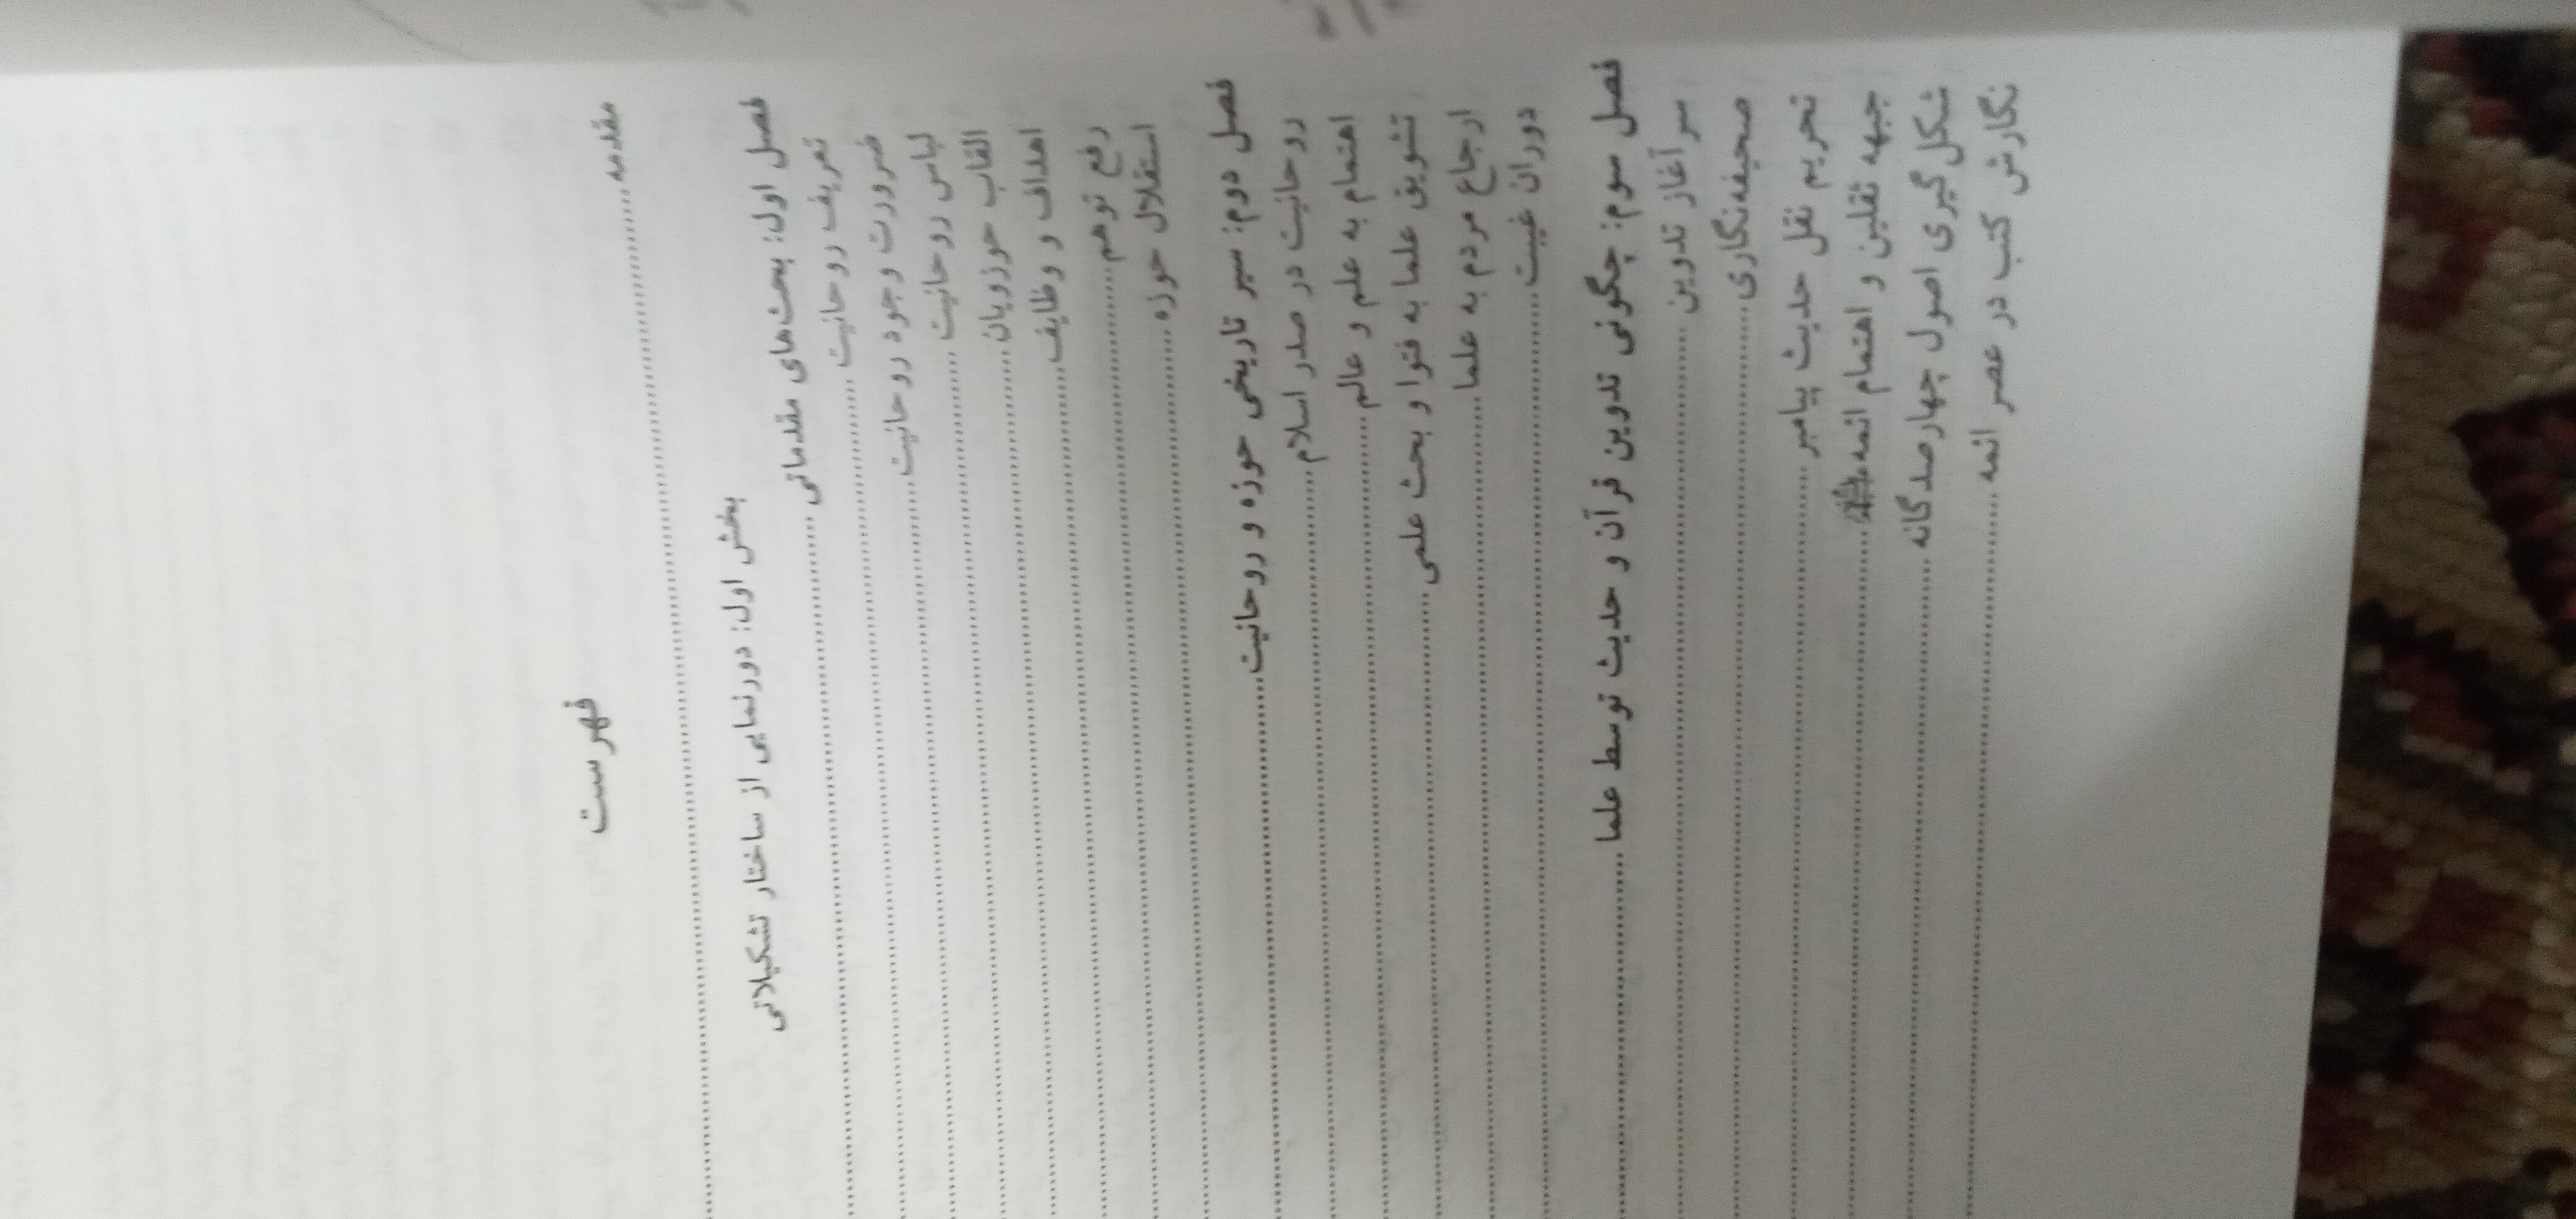 فهرست
مقدمه
بخش اول: دورنمایی از ساختار تشکیلاتی
فصل اول: بحث‌های مقدماتی
تعریف روحانیت
ضرورت وجود روحانیت
لباس روحانیت
القاب حوزویان
اهداف و وظایف
رفع توهم
استقلال حوزه
فصل دوم: سیر تاریخی حوزه و روحانیت
روحانیت در صدر اسلام
اهتمام به علم و عالم
تشویق علما به فتوا و بحث علمی
ارجاع مردم به علما
دوران غیبت
فصل سوم: چگونگی تدوین قرآن و حدیث توسط علما
سر آغاز تدوین
صحیفه‌نگاری
تحریم نقل حدیث پیامبر
جبهه ثقلین و اهتمام ائمه
شکل‌گیری اصول چهارصدگانه
نگارش کتب در عصر ائمه